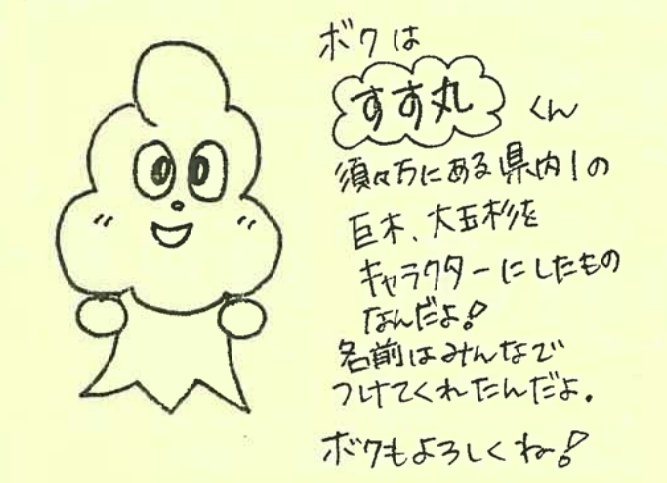 ボクは
すす丸くん
須々万にある県内1の
巨木、大玉杉を
キャラクターにしたもの
なんだよ!
名前はみんなで
つけてくれたんだよ。
ボクもよろしくね!